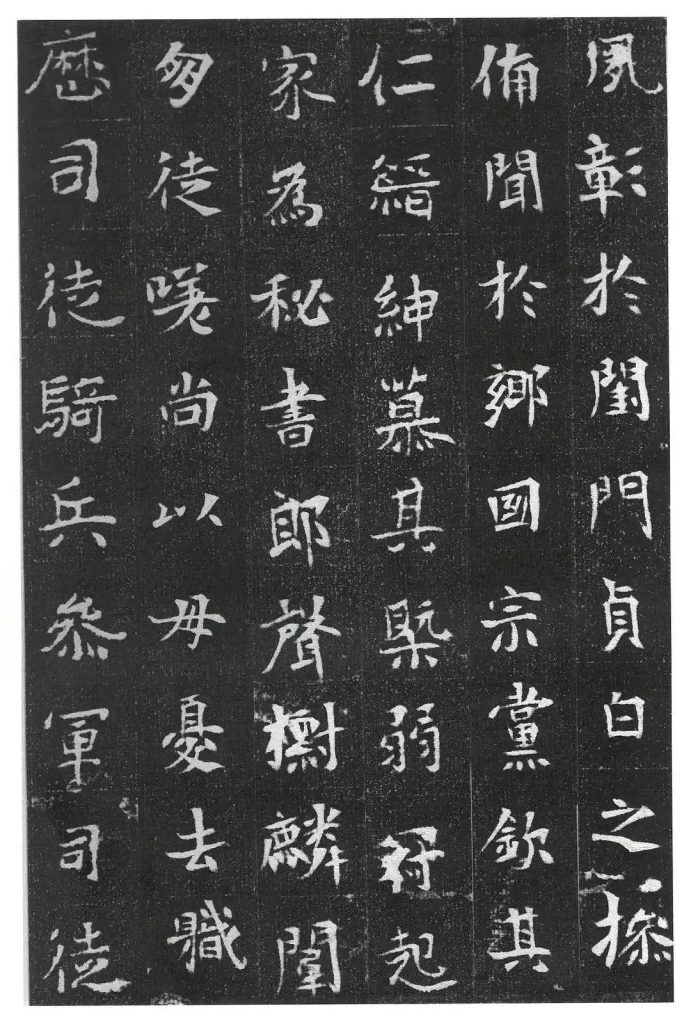 夙彰於閨門貞白之操
備聞於鄉國宗黨欽其
仁縉紳慕其槩弱冠起
家為秘書郎聲櫥麟闈
匆徒嘆尚以母憂去職
歷司徒騎兵參軍司徒